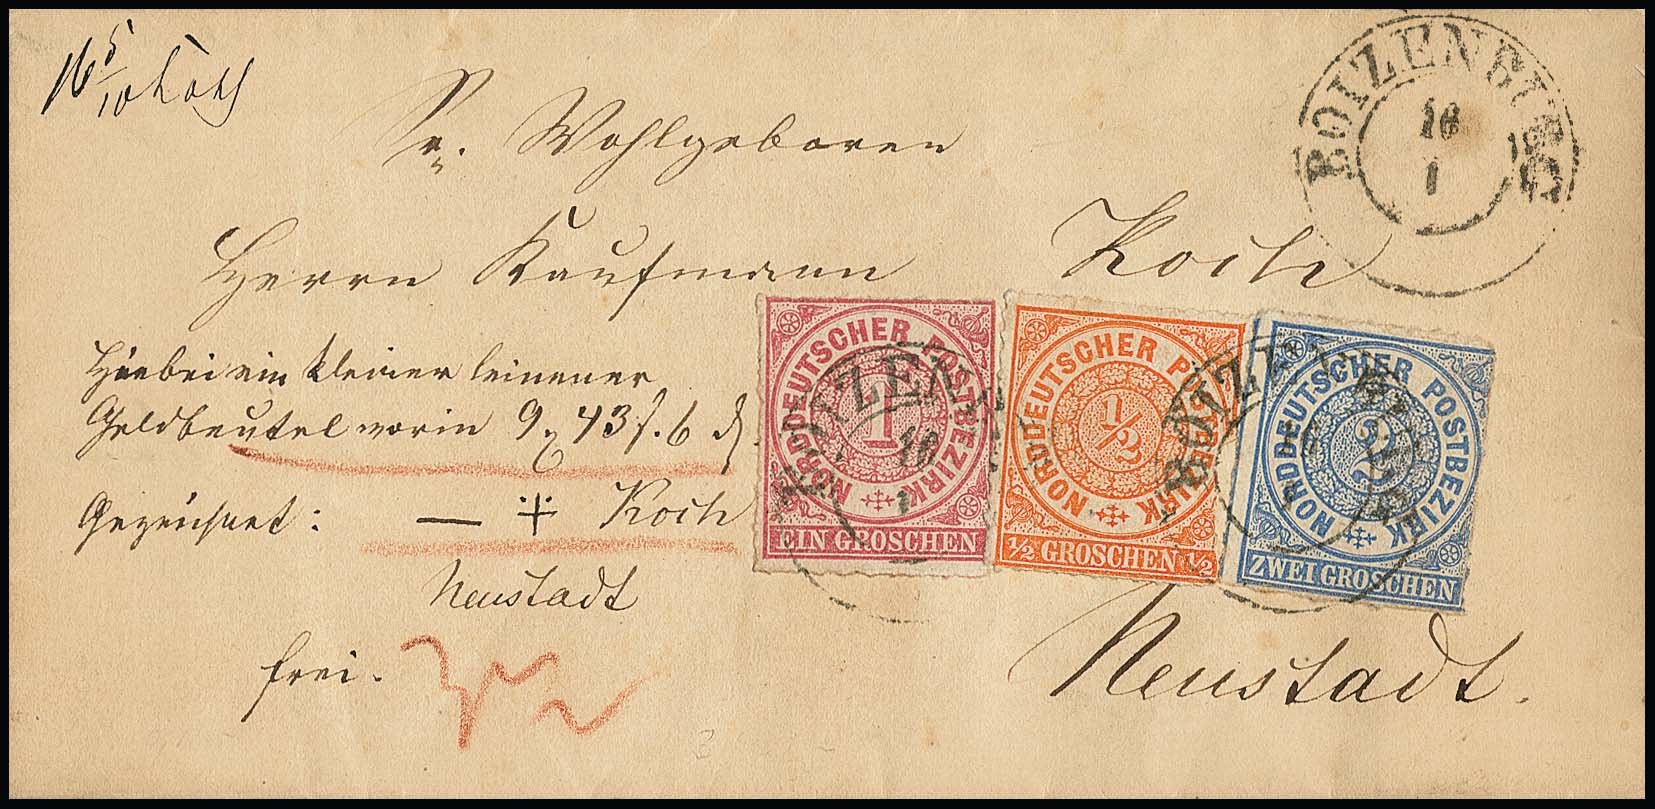 16 5/10 Loth
BOIZENBURG
16
1
Sr. Wohlgeboren
Herrn Kaufmann Koch
Hiebei ein kleiner leinener
Geldbeutel worin 9 43 f. 6
Gezeichnet: — + Koch
Neustadt
frei.
NORDDEUTSCHER POSTBEZIRK
1
EIN GROSCHEN
NORDDEUTSCHER POSTBEZIRK
1/2
1/2 GROSCHEN 1/2
NORDDEUTSCHER POSTBEZIRK
2
ZWEI GROSCHEN
Neustadt.